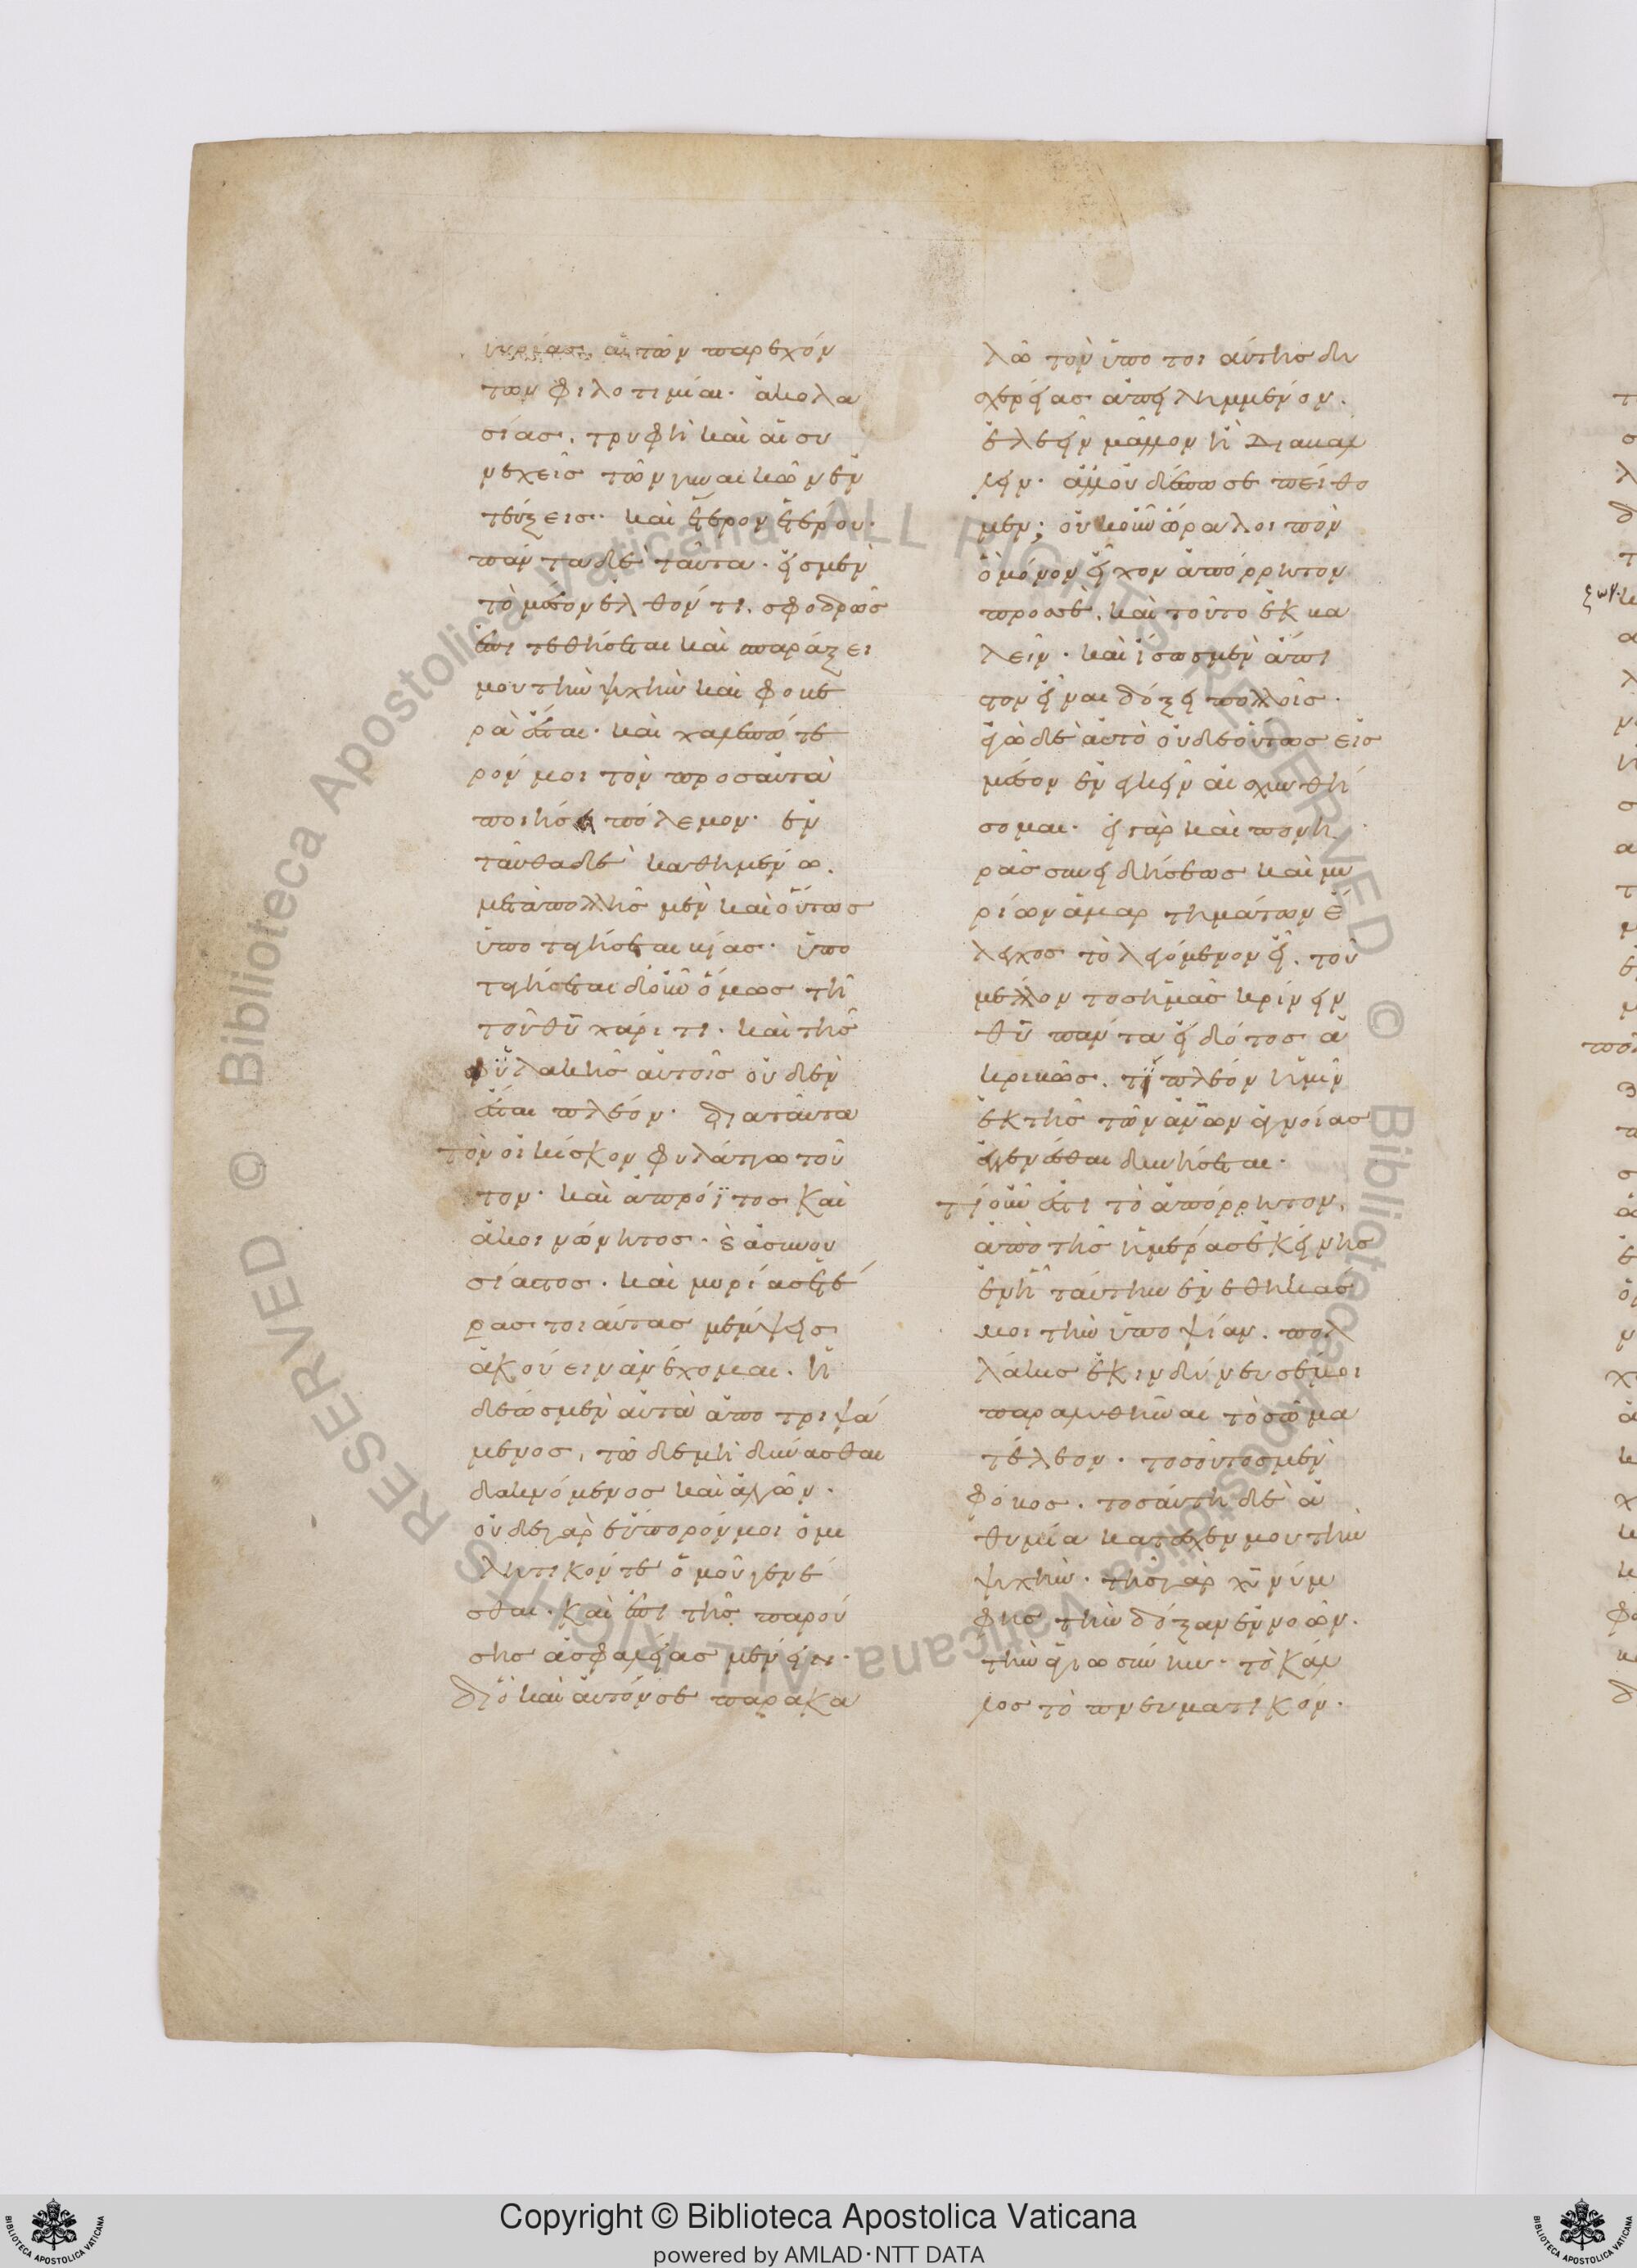 των παρεχόν
των φιλοτιμίαι· ἀκολα
σίας. τρυφὴ καὶ αἱ συ
νεχεῖς τῶν γυναικῶν ἐν
τεύξεις· καὶ ἕτερον ἑτέρου·
πάντα δὲ ταῦτα. εἰς μὲν
τὸ μέσον ἐλθόντι. σφοδρῶς
ἐπιτεθήσεται καὶ σπαράξει
μου τὴν ψυχὴν καὶ φοβε
ρὰ ἔσται· καὶ χαλεπώτε
ρόν μοι τὸν προς αὐτὰ
ποιήσει πόλεμον· ἐν
ταῦθα δὲ καθημένω.
μετὰ πολλῆς μὲν καὶ οὕτως
ὑποταγήσεται βίας· ὑπο
ταγήσεται δ' οὖν ὅμως τῆ
τοῦ θῦ χάριτι· καὶ τῆς
ὑλακῆς αὐτοῖς οὐδὲν
ἔσται πλέον· δια ταῦτα
τὸν οἰκίσκον φυλάττω τοῦ
τον· καὶ ἀπρόϊτος καὶ
ἀκοινώνητος· ἀσυνου
σίαστος. καὶ μυρίας ἑτέ
ρας τοιαύτας μέμψεις
ἀκούειν ἀνέχομαι. ἡ
δέως μὲν αὐτὰ ἀποτριψά
μενος, τῶ δε μὴ δύνασθαι
δακνόμενος καὶ ἀλγῶν·
οὐδε γὰρ εὔπορόν μοι ὁμι
λητικόν τε ὁμοῦ γενέ
σθαι. καὶ ἐπι τῆς παρού
σης ἀσφαλείας μένειν·
διὸ καὶ αὐτόν σε παρακα
λῶ τὸν ὑπο τοιαύτης δυ
σχερείας ἀπειλημμένον.
ἐλεεῖν μᾶλλον ἢ διαβαλ
λειν· ἀλλ' οὐδέπω σε πείθο
μεν; οὐκοῦν ὥρα λοιπὸν
ὁ μόνον εἶχον ἀπόρρητον
προσσὲ. καὶ τοῦτο ἐκβα
λεῖν· καὶ ἴσως μὲν ἄπι
στον εἶναι δόξει πολλοῖς·
ἐγὼ δὲ αὐτὸ οὐδε οὕτως εἰς
μέσον ἐνεγκεῖν αἰσχυνθή
σομαι· εἰ γὰρ καὶ πονη
ρᾶς συνειδήσεως καὶ μυ
ρίων ἁμαρτημάτων ἔ
λεγχος τὸ λεγόμενον ἦ. τοῦ
μέλλοντος ἡμᾶς κρίνειν
θῦ πάντα εἰδότος ἀ
κριβῶς. τί πλέον ἡμῖν
ἐκ τῆς τῶν ἀνων ἀγνοίας
ἐγγενέσθαι δυνήσεται·
τί οὖν ἐστι τὸ ἀπόρρητον,
ἀπο τῆς ἡμέρας ἐκείνης
ἐν ἧ ταύτην ἐνέθηκας
μοι τὴν ὑποψίαν. πολ
λάκις ἐκινδύνευσέ μοι
παραλυθῆναι τὸ σῶμα
τέλεον· τοσοῦτος μὲν
φόβος. τοσαύτη δὲ ἀ
θυμία κατέσχεν μου τὴν
ψυχὴν· τῆς γὰρ χῦ νύμ
φης τὴν δόξαν ἐννοῶν.
τὴν ἁγιωσύνην· τὸ κάλ
λος τὸ πνευματικόν·